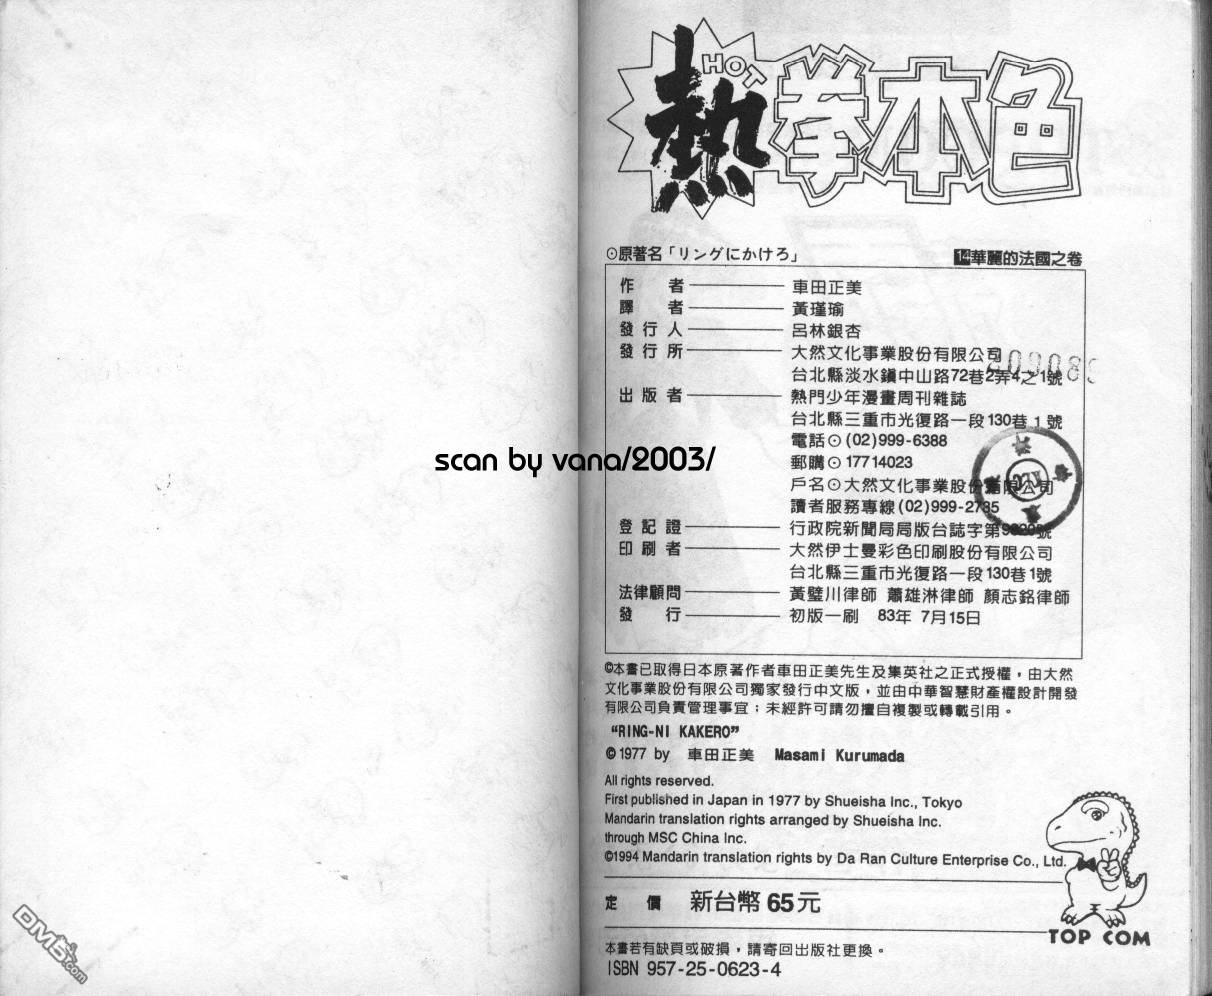 熱拳本色
HOT
⊙原著名「リングにかけろ」
14華麗的法國之卷
作者 車田正美
譯者 黃瑾瑜
發行人 呂林銀杏
發行所 大然文化事業股份有限公司
台北縣淡水鎮中山路72巷2弄4之1號
出版者 熱門少年漫畫周刊雜誌
台北縣三重市光復路一段130巷1號
電話⊙(02)999-6388
郵購⊙17714023
戶名⊙大然文化事業股份有限公司
讀者服務專線(02)999-2785
登記證 行政院新聞局局版台誌字第
印刷者 大然伊士曼彩色印刷股份有限公司
台北縣三重市光復路一段130巷1號
法律顧問 黃璧川律師 蕭雄淋律師 顏志銘律師
發行 初版一刷 83年7月15日
©本書已取得日本原著作者車田正美先生及集英社之正式授權，由大然
文化事業股份有限公司獨家發行中文版，並由中華智慧財產權設計開發
有限公司負責管理事宜；未經許可請勿擅自複製或轉載引用。
“RING-NI KAKERO”
©1977 by 車田正美 Masami Kurumada
All rights reserved.
First published in Japan in 1977 by Shueisha Inc., Tokyo
Mandarin translation rights arranged by Shueisha Inc.
through MSC China Inc.
©1994 Mandarin translation rights by Da Ran Culture Enterprise Co., Ltd.
定價 新台幣65元
TOP COM
本書若有缺頁或破損，請寄回出版社更換。
ISBN 957-25-0623-4
scan by vana/2003/
DM5.com